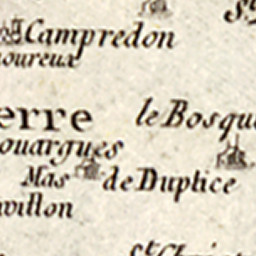 Campredon
oureux
erre le Bosqu
ouargues
Mas de Duplice
villon